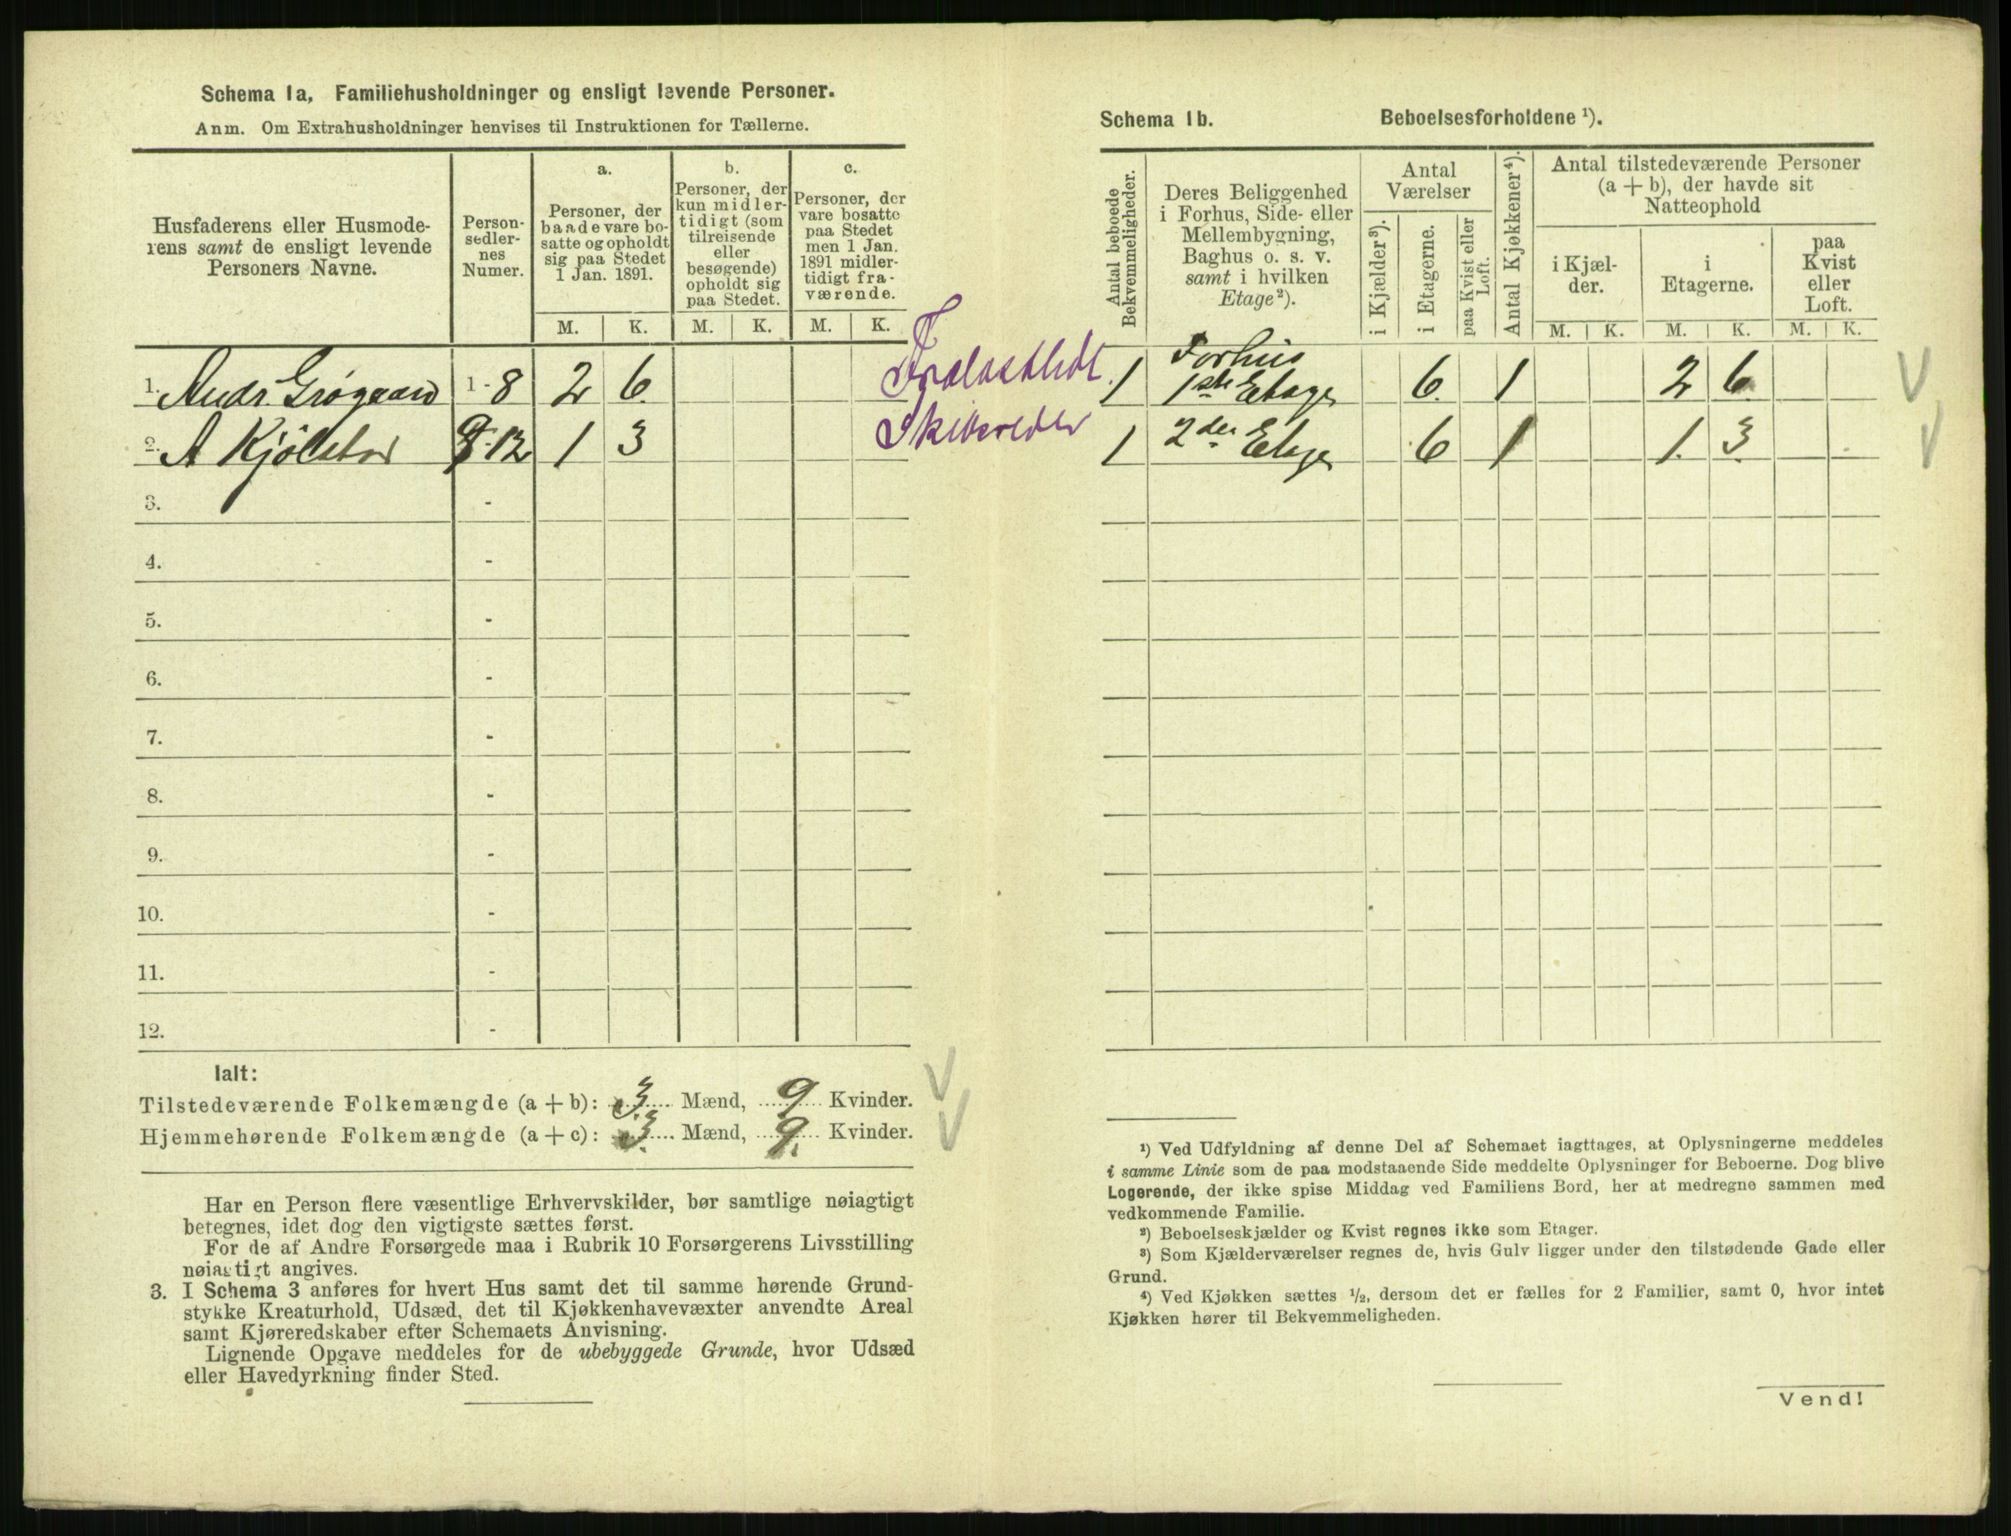 Schema 1a, Familiehusholdninger og ensligt levende Personer.
Anm. Om Extrahusholdninger henvises til Instruktionen for Tællerne.
Husfaderens eller Husmode-
rens samt de ensligt levende
Personers Navne.
Person-
sedler-
nes
Numer.
a.
Personer, der
baade vare bo-
satte og opholdt
sig paa Stedet
1 Jan. 1891.
b.
Personer, der
kun midler-
tidigt (som
tilreisende
eller
besøgende)
opholdt sig
paa Stedet.
c.
Personer, der
vare bosatte
paa Stedet
men 1 Jan.
1891 midler-
tidigt fra-
værende.
M. K. M. K. M. K.
1. Andr. Grøgaard 1-8 2 6.
2. A Kjölstad 9-12 1 3
3. -
4. -
5. -
6. -
7. -
8. -
9. -
10. -
11. -
12. -
Skibsreder
Ialt:
Tilstedeværende Folkemængde (a + b): 3. Mænd, 9 Kvinder.
Hjemmehørende Folkemængde (a + c): 3. Mænd, 9. Kvinder.
Har en Person flere væsentlige Erhvervskilder, bør samtlige nøiagtigt
betegnes, idet dog den vigtigste sættes først.
For de af Andre Forsørgede maa i Rubrik 10 Forsørgerens Livsstilling
nøiagtigt angives.
3. I Schema 3 anføres for hvert Hus samt det til samme hørende Grund-
stykke Kreaturhold, Udsæd, det til Kjøkkenhavevæxter anvendte Areal
samt Kjøreredskaber efter Schemaets Anvisning.
Lignende Opgave meddeles for de ubebyggede Grunde, hvor Udsæd
eller Havedyrkning finder Sted.
Schema 1b. Beboelsesforholdene ¹).
Antal beboede
Bekvemmeligheder.
Deres Beliggenhed
i Forhus, Side- eller
Mellembygning,
Baghus o. s. v.
samt i hvilken
Etage²).
Antal
Værelser
i Kjælder³).
i Etagerne.
paa Kvist eller
Loft.
Antal Kjøkkener⁴).
Antal tilstedeværende Personer
(a + b), der havde sit
Natteophold
i Kjæl-
der.
i
Etagerne.
paa
Kvist
eller
Loft.
M. K. M. K. M. K.
1 Forhus
1ste Etage 6. 1 2 6.
1 2den Etage 6 1 1. 3.
¹) Ved Udfyldning af denne Del af Schemaet iagttages, at Oplysningerne meddeles
i samme Linie som de paa modstaaende Side meddelte Oplysninger for Beboerne. Dog blive
Logerende, der ikke spise Middag ved Familiens Bord, her at medregne sammen med
vedkommende Familie.
²) Beboelseskjælder og Kvist regnes ikke som Etager.
³) Som Kjælderværelser regnes de, hvis Gulv ligger under den tilstødende Gade eller
Grund.
⁴) Ved Kjøkken sættes ½, dersom det er fælles for 2 Familier, samt 0, hvor intet
Kjøkken hører til Bekvemmeligheden.
Vend!